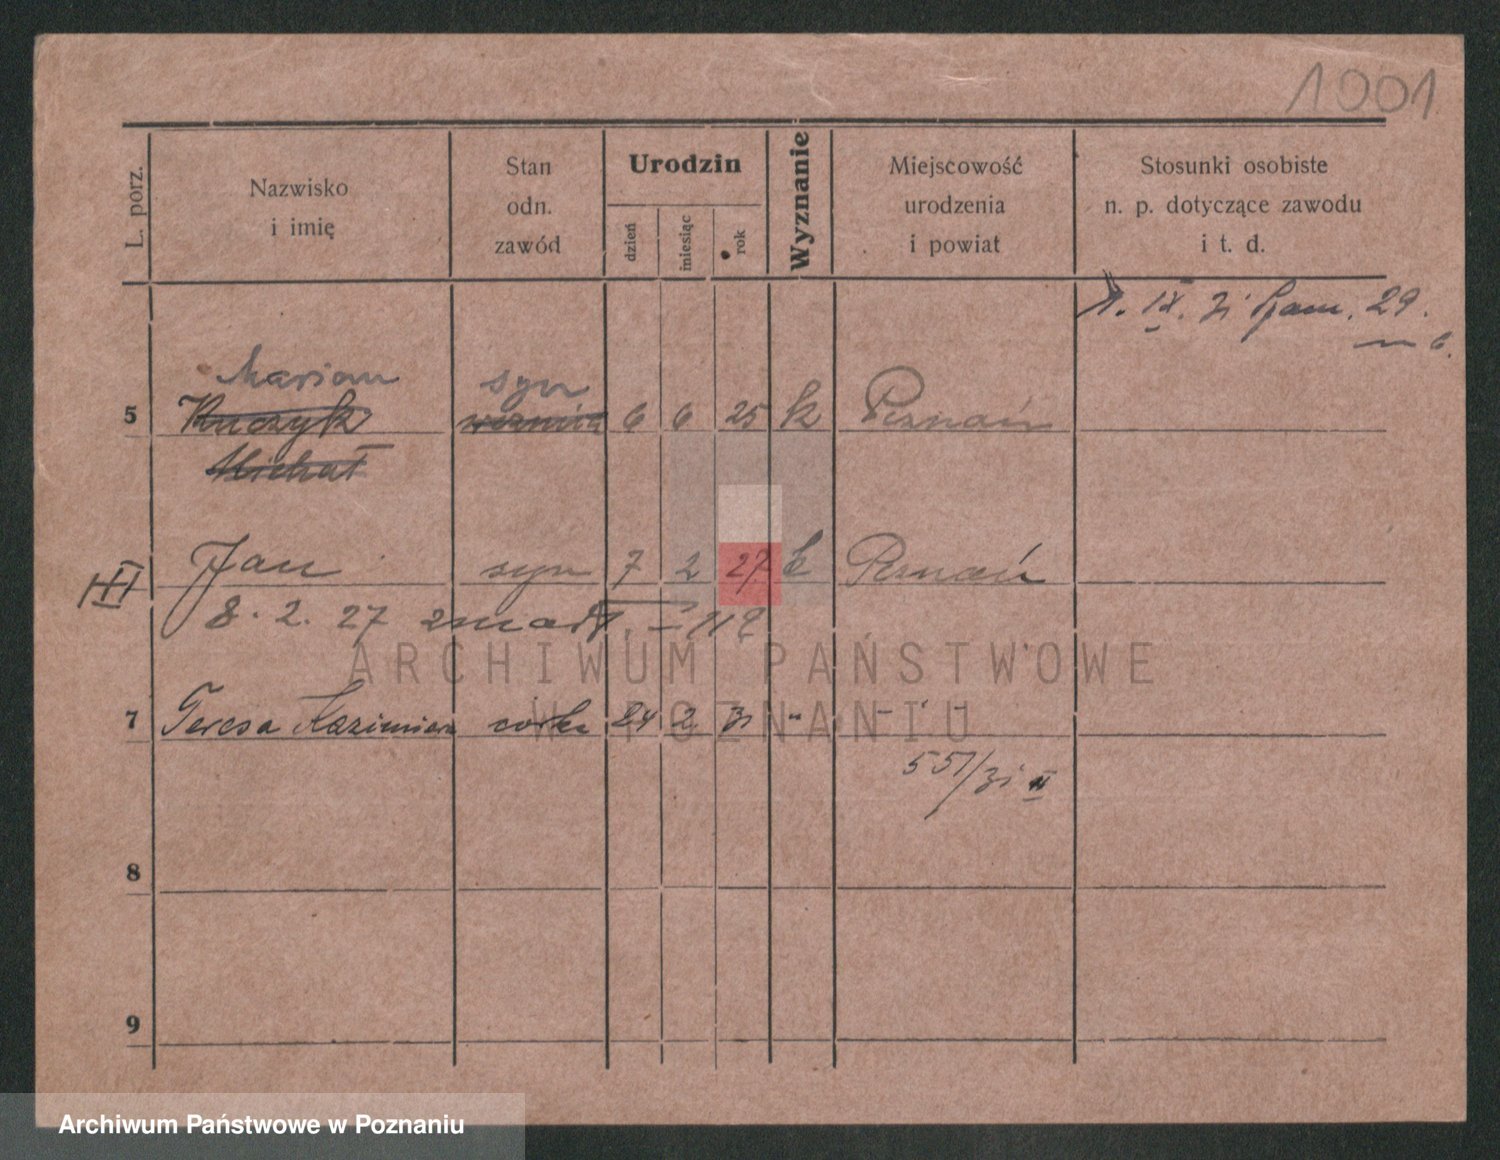 1001
L. porz.
Nazwisko
i imię
Stan
odn.
zawód
Urodzin
dzień
miesiąc
rok
Wyznanie
Miejscowość
urodzenia
i powiat
Stosunki osobiste
n. p. dotyczące zawodu
i t. d.
1. IX. 31 29.
Marian syn
5 Kuczyk 6 6 25 k Poznań
Michał
Jan syn 7 2 27 k Poznań
8. 2. 27 zmarł
ARCHIWUM PAŃSTWOWE
W POZNANIU
7 Teresa Kazimiera córka 24 2 31 " - " -
551/31 II
8
9
Archiwum Państwowe w Poznaniu